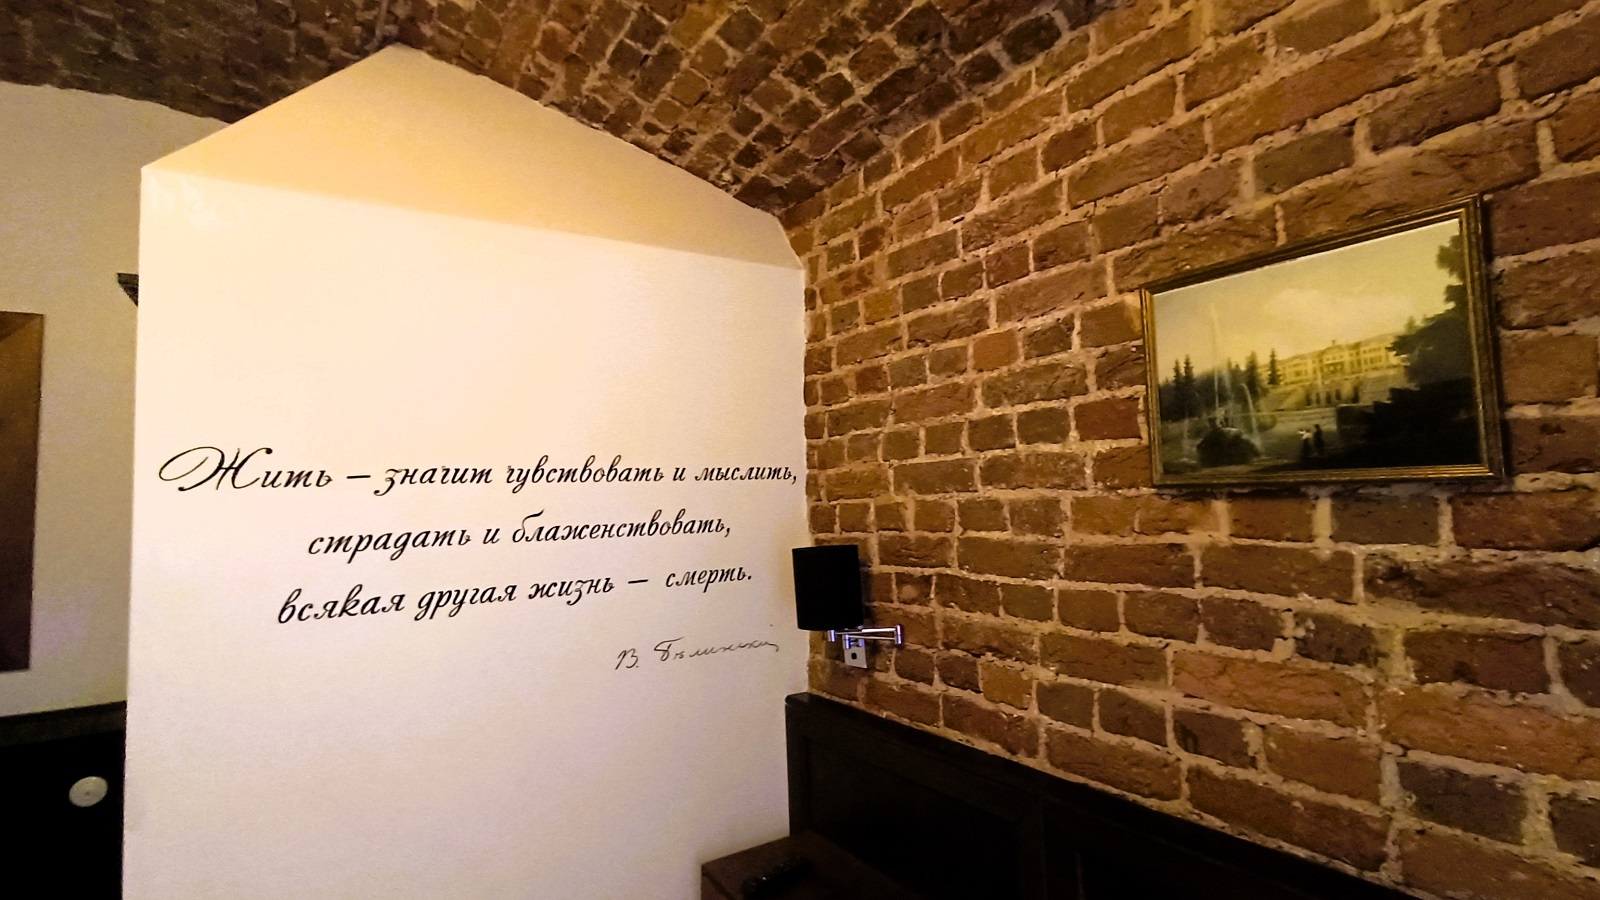 Жить – значит чувствовать и мыслить,
страдать и блаженствовать,
всякая другая жизнь – смерть.
В. Бѣлинскій